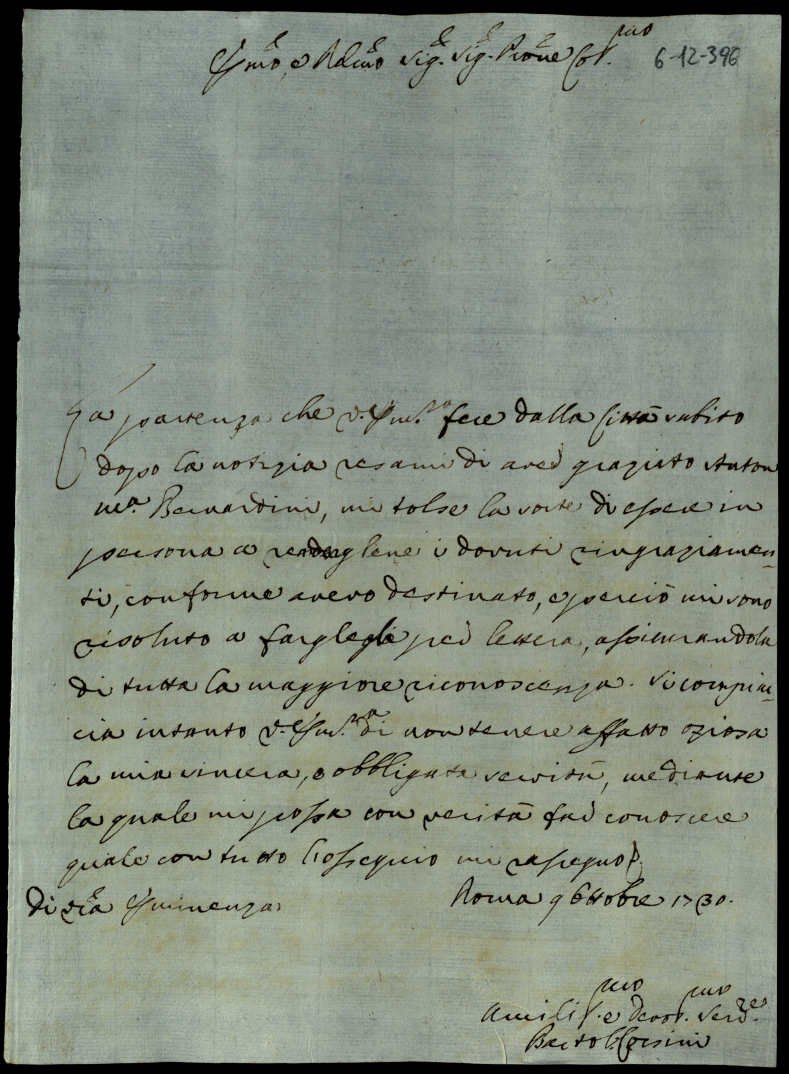 Em̃o, e Rd̃mo Sig.r Sig.r Pr̃one Col.mo 6-12-396
La partenza che V. Em.za fece dalla Città subito
dopo la notizia resami di aver graziato Anton
M.a Bernardini, mi tolse la sorte di essere in
persona a renderglene i dovuti ringraziamen-
ti, conforme avevo destinato, e perciò mi sono
risoluto a fargleli per lettera, assicurandola
di tutta la maggiore riconoscenza. Si compiac-
cia intanto V. Em.za di non tenere affatto oziosa
la mia sincera, e obbligata servitù, mediante
la quale mi possa con verità far conoscere
quale con tutto l'ossequio mi rassegno
di Vr̃a Eminenza
Roma 9 Ottobre 1730.
Umilis.mo e Devot.mo Serv.re
Barto. Corsini